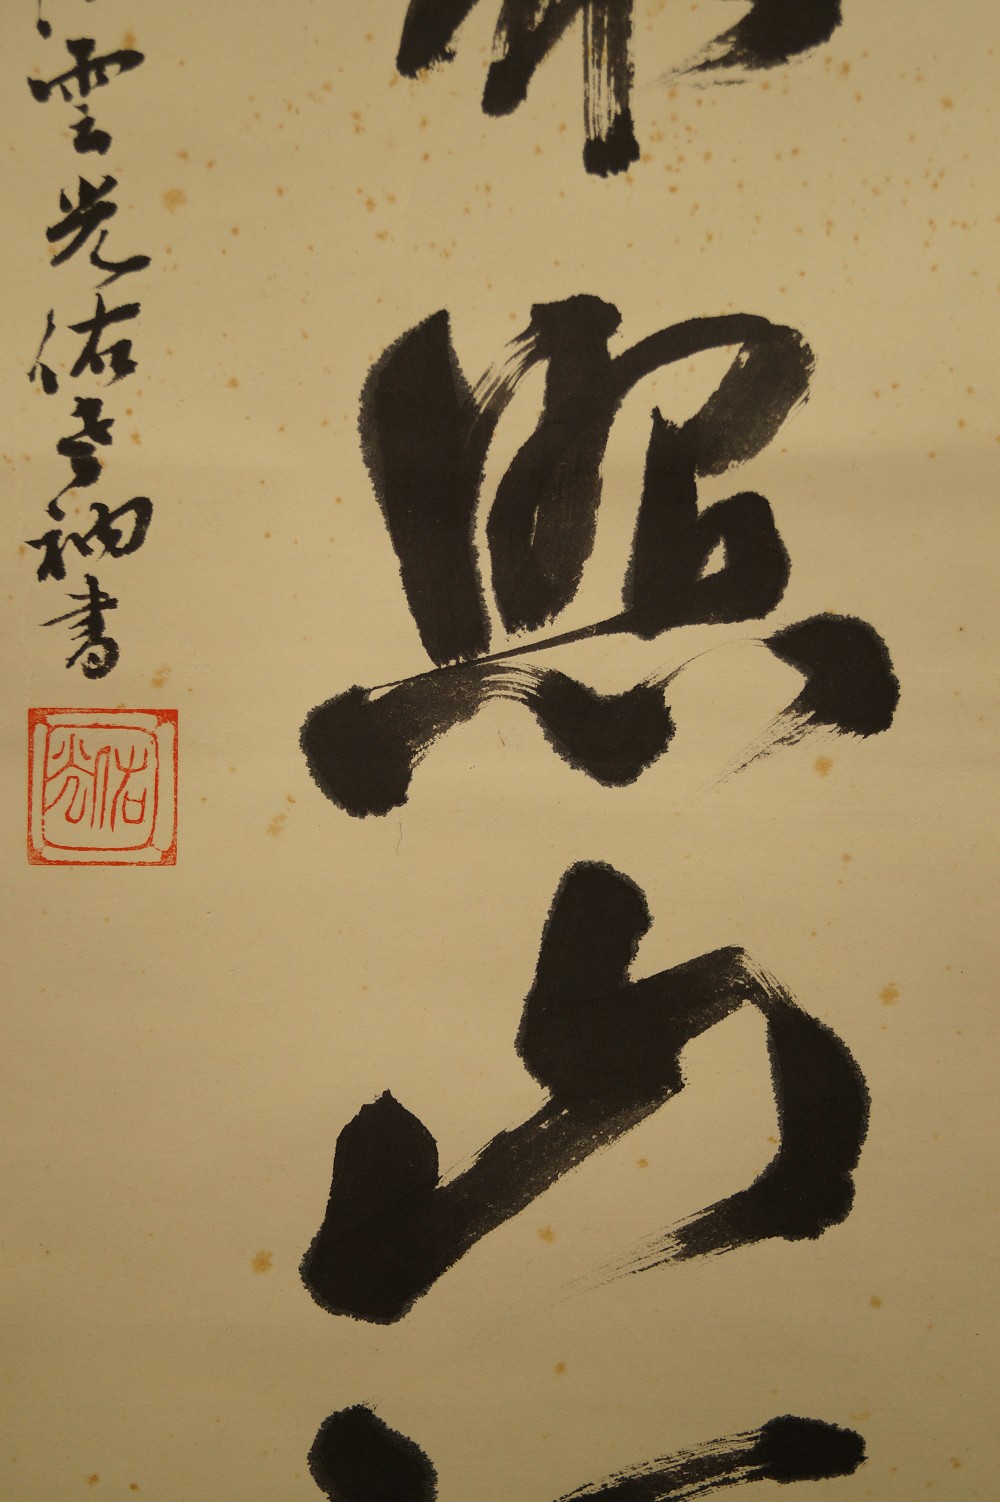 照山
雲光佑老衲書
佑光